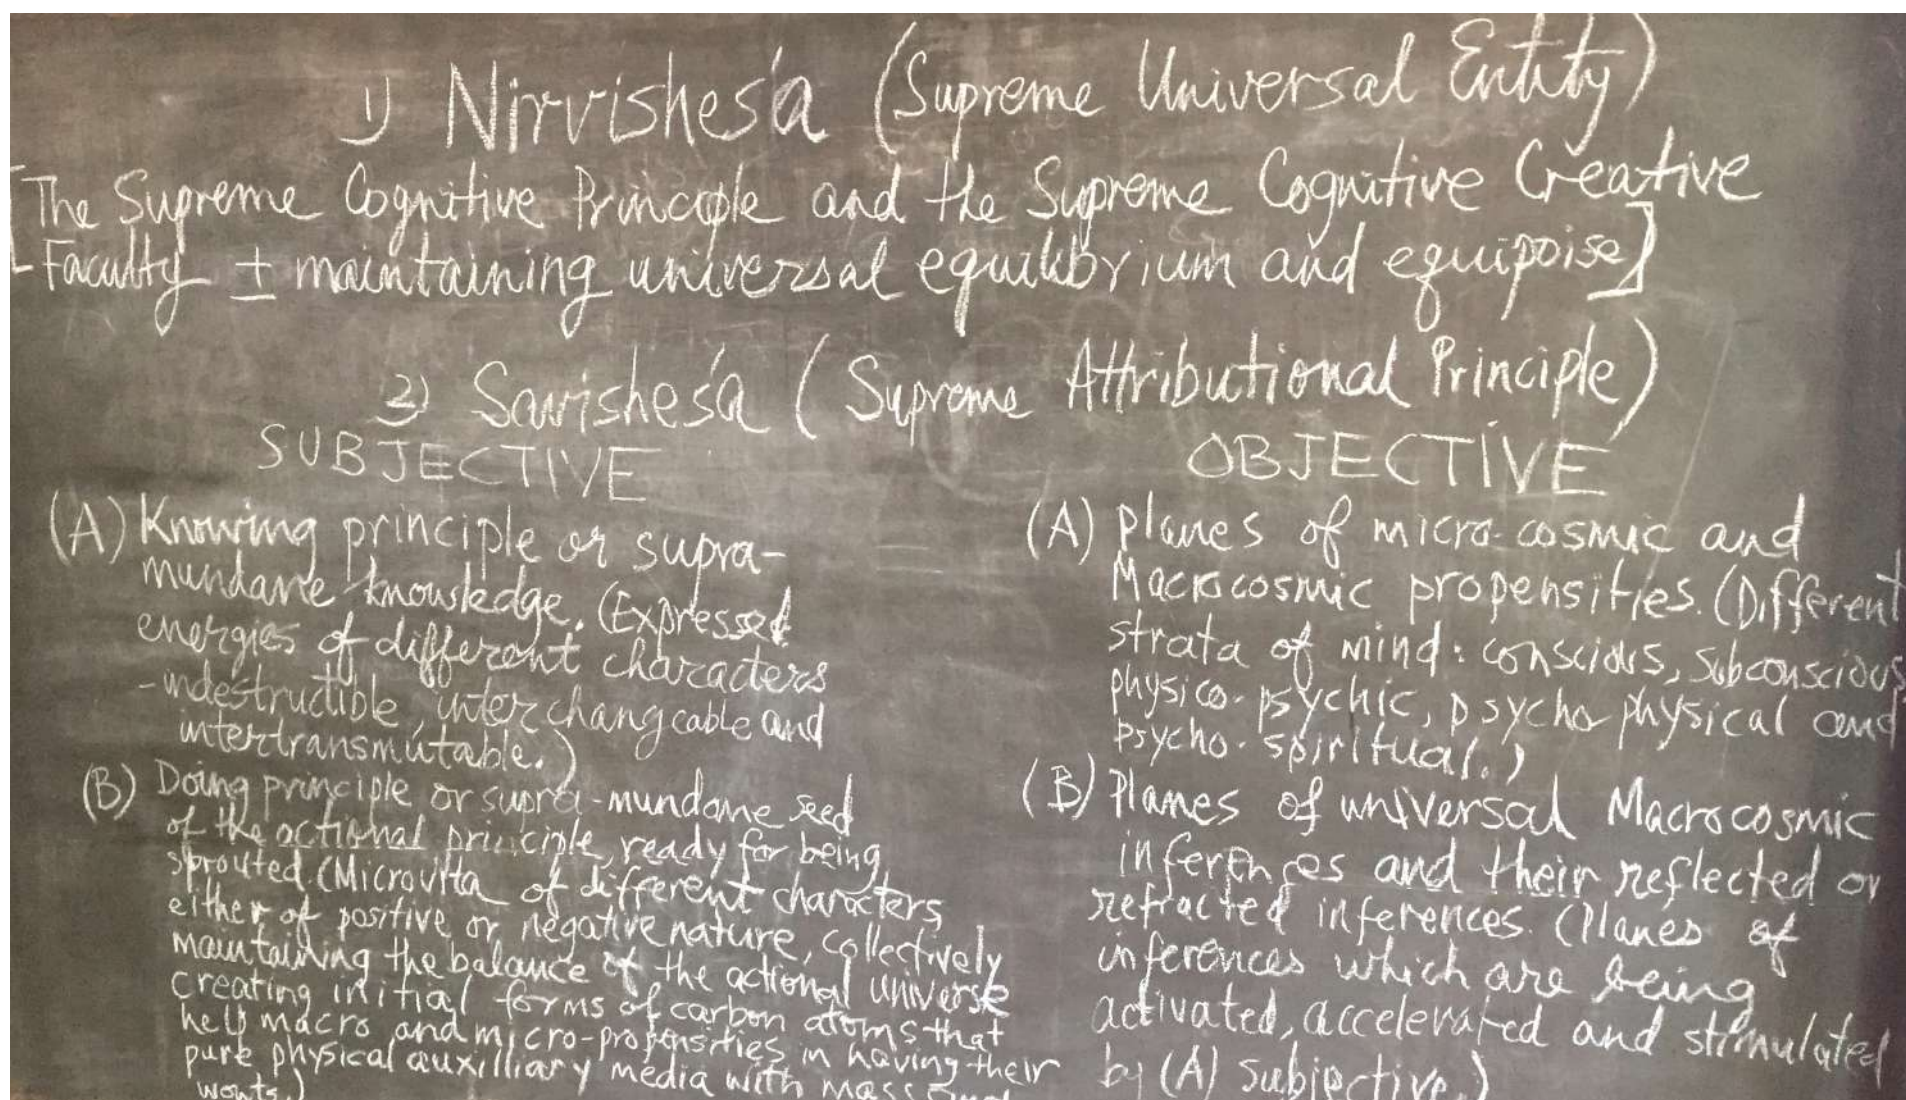 1) Nirvisheśa (Supreme Universal Entity)
[The Supreme Cognitive Principle and the Supreme Cognitive Creative
Faculty ± maintaining universal equilibrium and equipoise]
2) Savisheśa (Supreme Attributional Principle)
SUBJECTIVE
(A) Knowing principle or supra-
mundane knowledge. (Expressed
energies of different characters
-indestructible, interchangeable and
intertransmutable.)
(B) Doing principle or supra-mundane seed
of the actional principle, ready for being
sprouted. (Microvita of different characters
either of positive or negative nature, collectively
maintaining the balance of the actional universe
creating initial forms of carbon atoms that
help macro and micro-propensities in having their
pure physical auxilliary media with mass
wants.)
OBJECTIVE
(A) Planes of micro-cosmic and
Macrocosmic propensities. (Different
strata of mind: conscious, subconscious,
physico-psychic, psycho-physical and
psycho-spiritual.)
(B) Planes of universal Macrocosmic
inferences and their reflected or
refracted inferences. (Planes of
inferences which are being
activated, accelerated and stimulated
by (A) subjective.)